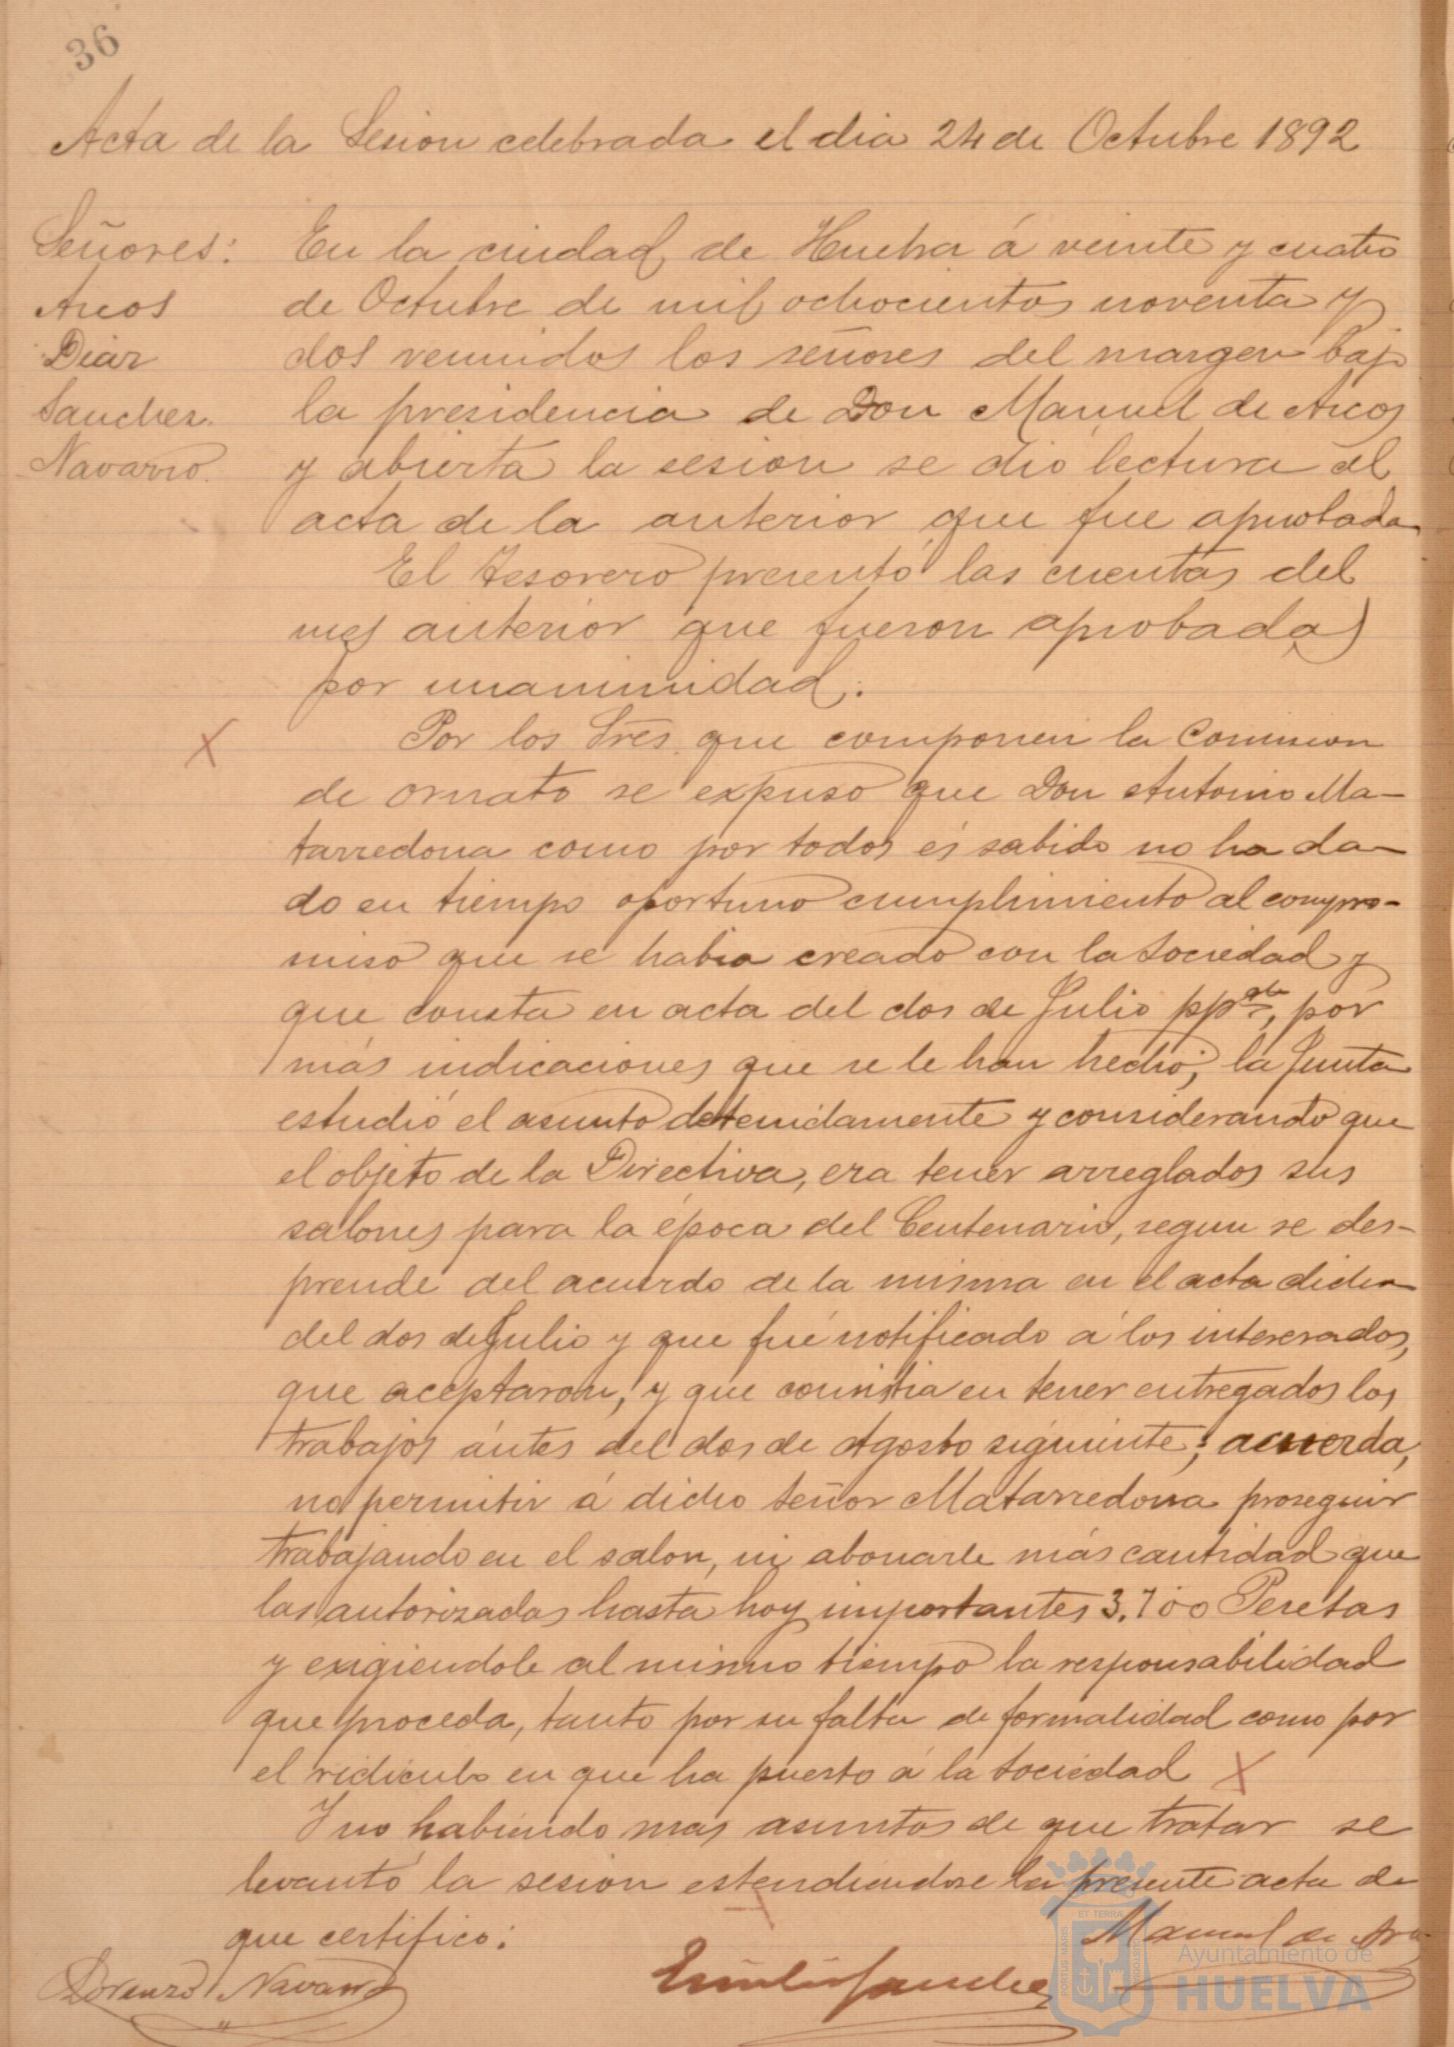 36
Acta de la Sesion celebrada el dia 24 de Octubre 1892
Señores:
Arcos
Diaz
Sanchez.
Navarro.
En la ciudad de Huelva á veinte y cuatro
de Octubre de mil ochocientos noventa y
dos reunidos los señores del margen bajo
la presidencia de Don Manuel de Arcos
y abierta la sesion se dió lectura al
acta de la anterior que fue aprobada
El Tesorero presentó las cuentas del
mes anterior que fueron aprobadas
por unanimidad.
Por los Sres. que componen la Comision
de ornato se expuso que Don Antonio Ma-
tarredona como por todos és sabido no ha da-
do en tiempo oportuno cumplimiento al compro-
miso que se habia creado con la Sociedad y
que consta en acta del dos de Julio ppdo, por
más indicaciones que se le han hecho; la Junta
estudió el asunto detenidamente y considerando que
el objeto de la Directiva, era tener arreglados sus
salones para la época del Centenario, segun se des-
prende del acuerdo de la misma en el acta dicha
del dos de Julio y que fué notificado á los interesados,
que aceptaron, y que consistia en tener entregados los
trabajos ántes del dos de Agosto siguiente; acuerda,
no permitir á dicho señor Matarredona proseguir
trabajando en el salon, ni abonarle más cantidad que
las autorizadas hasta hoy importantes 3.700 Pesetas
y exigiendole al mismo tiempo la responsabilidad
que proceda, tanto por su falta de formalidad como por
el ridiculo en que ha puesto á la Sociedad
Y no habiendo mas asuntos de que tratar se
levantó la sesion estendiendose la presente acta de
que certifico.
Manuel de Arcos
Lorenzo Navarro
Emilio Sanchez
PORTUS MARIS ET TERRAE CUSTODIA
Ayuntamiento de
HUELVA